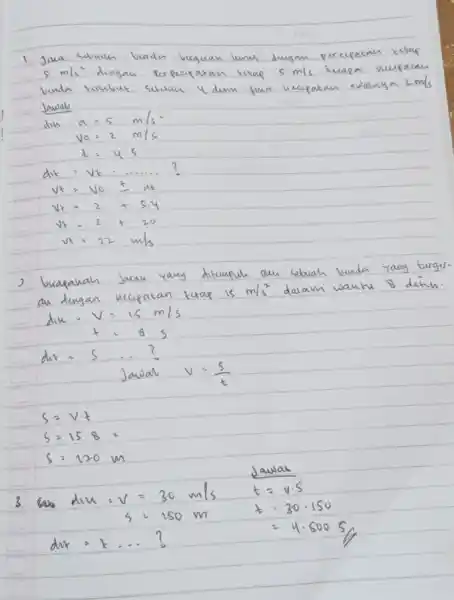 1 Jika sebuah benda bergerak lurus dengan percepatan tetap
5 m/s² dengan tetap 5 m/s
benda tersebut setelah 4 detik jika kecepatan 2 m/s
Jawab
dik a = 5 m/s²
Vo = 2 m/s
t = 4 s
dit = Vt ........ ?
Vt = Vo ± at
Vt = 2 + 5.4
Vt = 2 + 20
Vt = 22 m/s
2 berapakah jarak yang ditempuh dari sebuah benda yang berger-
ak dengan kecepatan tetap 15 m/s² dalam waktu 8 detik.
dik = V = 15 m/s
t = 8 s
dit = S ... ?
Jawab V = S/t
S = V t
S = 15 8 =
S = 120 m
3 dik = V = 30 m/s
S = 150 m
dit = t ... ?
Jawab
t = V.S
t = 30.150
= 4.500 S